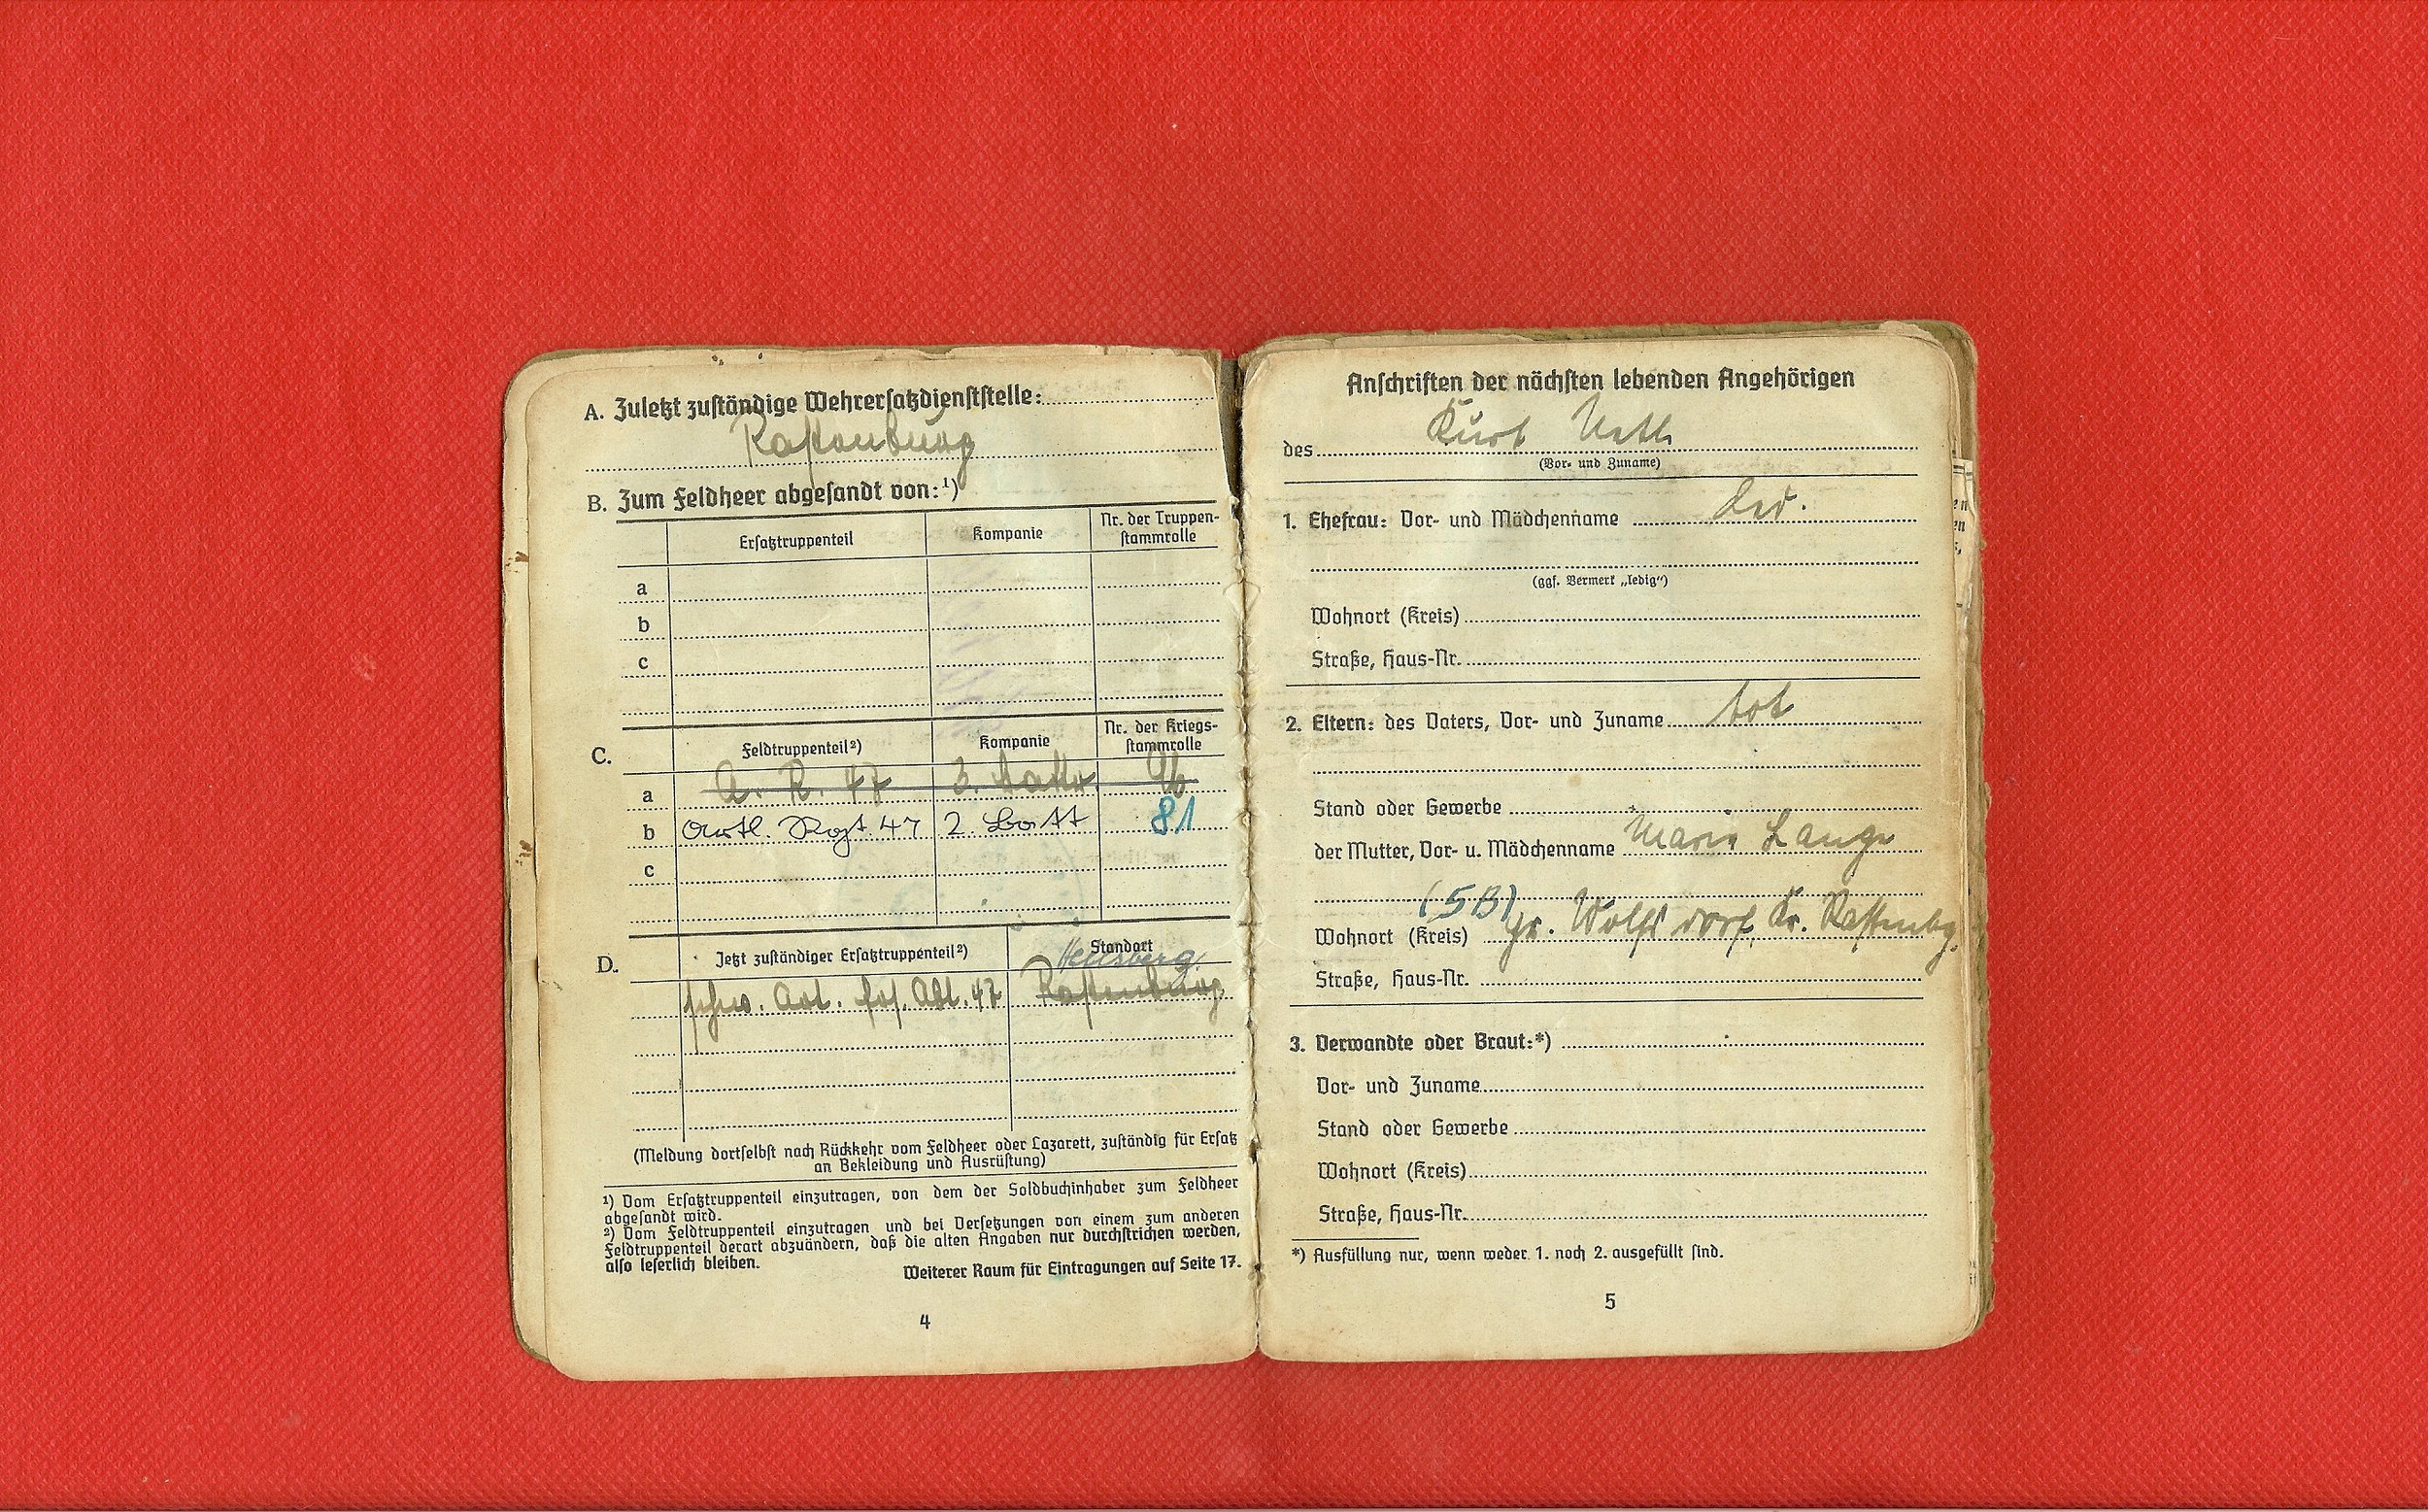 A. Zuletzt zuständige Wehrersatzdienststelle:
Rastenburg
B. Zum Feldheer abgesandt von:¹)
Ersatztruppenteil Kompanie Nr. der Truppen-
stammrolle
a
b
c
C. Feldtruppenteil²) Kompanie Nr. der Kriegs-
stammrolle
a A. R. 47 3. Battr.
b Artl. Rgt. 47 2. Batt 81
c
D. Jetzt zuständiger Ersatztruppenteil²) Standort
Heilsberg
schw. Art. Ers. Abt. 47 Rastenburg
(Meldung dortselbst nach Rückkehr vom Feldheer oder Lazarett, zuständig für Ersatz
an Bekleidung und Ausrüstung)
¹) Vom Ersatztruppenteil einzutragen, von dem der Soldbuchinhaber zum Feldheer
abgesandt wird.
²) Vom Feldtruppenteil einzutragen und bei Versetzungen von einem zum anderen
Feldtruppenteil derart abzuändern, daß die alten Angaben nur durchstrichen werden,
also leserlich bleiben.
Weiterer Raum für Eintragungen auf Seite 17.
4
Anschriften der nächsten lebenden Angehörigen
des Kurt
(Vor- und Zuname)
1. Ehefrau: Vor- und Mädchenname led.
(ggf. Vermerk „ledig“)
Wohnort (Kreis)
Straße, Haus-Nr.
2. Eltern: des Vaters, Vor- und Zuname tot
Stand oder Gewerbe
der Mutter, Vor- u. Mädchenname Marie Lange
(5B)
Wohnort (Kreis) Gr. Wolfsdorf, Kr. Rastenbg.
Straße, Haus-Nr.
3. Verwandte oder Braut:*)
Vor- und Zuname
Stand oder Gewerbe
Wohnort (Kreis)
Straße, Haus-Nr.
*) Ausfüllung nur, wenn weder 1. noch 2. ausgefüllt sind.
5